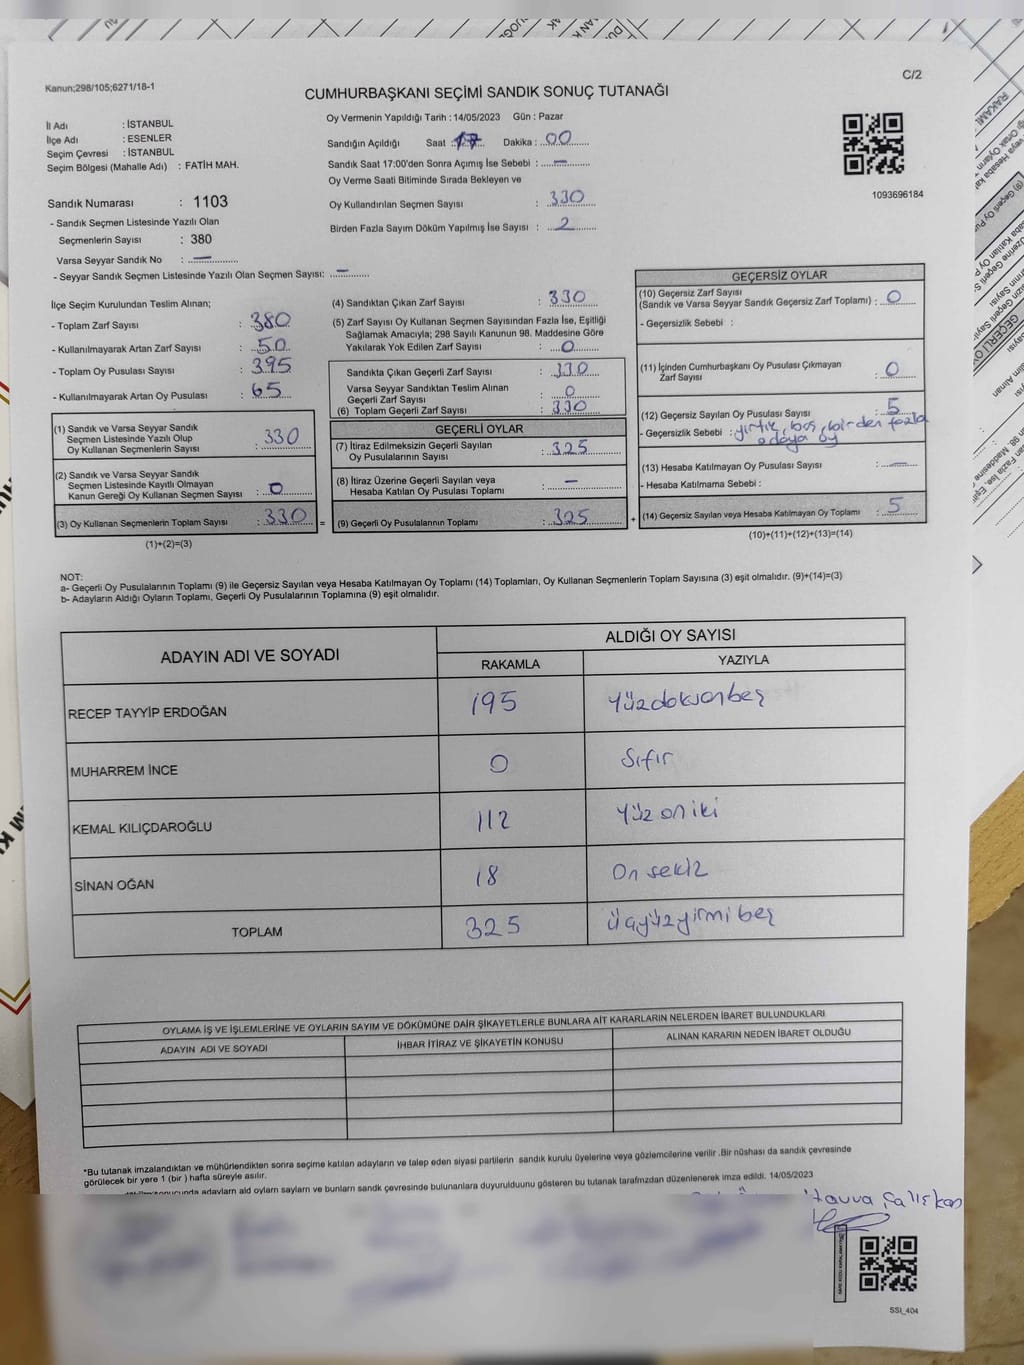 Kanun;298/105;6271/18-1
C/2
CUMHURBAŞKANI SEÇİMİ SANDIK SONUÇ TUTANAĞI
İl Adı : İSTANBUL
İlçe Adı : ESENLER
Seçim Çevresi : İSTANBUL
Seçim Bölgesi (Mahalle Adı) : FATİH MAH.
Oy Vermenin Yapıldığı Tarih : 14/05/2023 Gün : Pazar
Sandığın Açıldığı Saat : 17 Dakika : 00
Sandık Saat 17:00'den Sonra Açımış İse Sebebi : —
Oy Verme Saati Bitiminde Sırada Bekleyen ve
Oy Kullandırılan Seçmen Sayısı : 330
Birden Fazla Sayım Döküm Yapılmış İse Sayısı : 2
1093696184
Sandık Numarası : 1103
- Sandık Seçmen Listesinde Yazılı Olan
Seçmenlerin Sayısı : 380
Varsa Seyyar Sandık No : —
- Seyyar Sandık Seçmen Listesinde Yazılı Olan Seçmen Sayısı: —
İlçe Seçim Kurulundan Teslim Alınan;
- Toplam Zarf Sayısı : 380
- Kullanılmayarak Artan Zarf Sayısı : 50
- Toplam Oy Pusulası Sayısı : 395
- Kullanılmayarak Artan Oy Pusulası : 65
(1) Sandık ve Varsa Seyyar Sandık
Seçmen Listesinde Yazılı Olup
Oy Kullanan Seçmenlerin Sayısı : 330
(2) Sandık ve Varsa Seyyar Sandık
Seçmen Listesinde Kayıtlı Olmayan
Kanun Gereği Oy Kullanan Seçmen Sayısı : 0
(3) Oy Kullanan Seçmenlerin Toplam Sayısı : 330 =
(1)+(2)=(3)
(4) Sandıktan Çıkan Zarf Sayısı : 330
(5) Zarf Sayısı Oy Kullanan Seçmen Sayısından Fazla İse, Eşitliği
Sağlamak Amacıyla; 298 Sayılı Kanunun 98. Maddesine Göre
Yakılarak Yok Edilen Zarf Sayısı : 0
Sandıkta Çıkan Geçerli Zarf Sayısı : 330
Varsa Seyyar Sandıktan Teslim Alınan
Geçerli Zarf Sayısı : 0
(6) Toplam Geçerli Zarf Sayısı : 330
GEÇERLİ OYLAR
(7) İtiraz Edilmeksizin Geçerli Sayılan
Oy Pusulalarının Sayısı : 325
(8) İtiraz Üzerine Geçerli Sayılan veya
Hesaba Katılan Oy Pusulası Toplamı : —
(9) Geçerli Oy Pusulalarının Toplamı : 325 +
GEÇERSİZ OYLAR
(10) Geçersiz Zarf Sayısı
(Sandık ve Varsa Seyyar Sandık Geçersiz Zarf Toplamı) : 0
- Geçersizlik Sebebi :
(11) İçinden Cumhurbaşkanı Oy Pusulası Çıkmayan
Zarf Sayısı : 0
(12) Geçersiz Sayılan Oy Pusulası Sayısı : 5
- Geçersizlik Sebebi : yırtık, boş, birden fazla
adaya oy
(13) Hesaba Katılmayan Oy Pusulası Sayısı : —
- Hesaba Katılmama Sebebi :
(14) Geçersiz Sayılan veya Hesaba Katılmayan Oy Toplamı : 5
(10)+(11)+(12)+(13)=(14)
NOT:
a- Geçerli Oy Pusulalarının Toplamı (9) ile Geçersiz Sayılan veya Hesaba Katılmayan Oy Toplamı (14) Toplamları, Oy Kullanan Seçmenlerin Toplam Sayısına (3) eşit olmalıdır. (9)+(14)=(3)
b- Adayların Aldığı Oyların Toplamı, Geçerli Oy Pusulalarının Toplamına (9) eşit olmalıdır.
ADAYIN ADI VE SOYADI
ALDIĞI OY SAYISI
RAKAMLA YAZIYLA
RECEP TAYYİP ERDOĞAN 195 Yüzdoksanbeş
MUHARREM İNCE 0 Sıfır
KEMAL KILIÇDAROĞLU 112 Yüz on iki
SİNAN OĞAN 18 On sekiz
TOPLAM 325 üçyüzyirmi beş
OYLAMA İŞ VE İŞLEMLERİNE VE OYLARIN SAYIM VE DÖKÜMÜNE DAİR ŞİKAYETLERLE BUNLARA AİT KARARLARIN NELERDEN İBARET BULUNDUKLARI
ADAYIN ADI VE SOYADI İHBAR İTİRAZ VE ŞİKAYETİN KONUSU ALINAN KARARIN NEDEN İBARET OLDUĞU
*Bu tutanak imzalandıktan ve mühürlendikten sonra seçime katılan adayların ve talep eden siyasi partilerin sandık kurulu üyelerine veya gözlemcilerine verilir .Bir nüshası da sandık çevresinde
görülecek bir yere 1 (bir ) hafta süreyle asılır.
adayların ald oyların sayların ve bunların sandk çevresinde bulunanlara duyurulduunu gösteren bu tutanak tarafmzdan düzenlenerek imza edildi. 14/05/2023
Çalışkan
SSİ_404